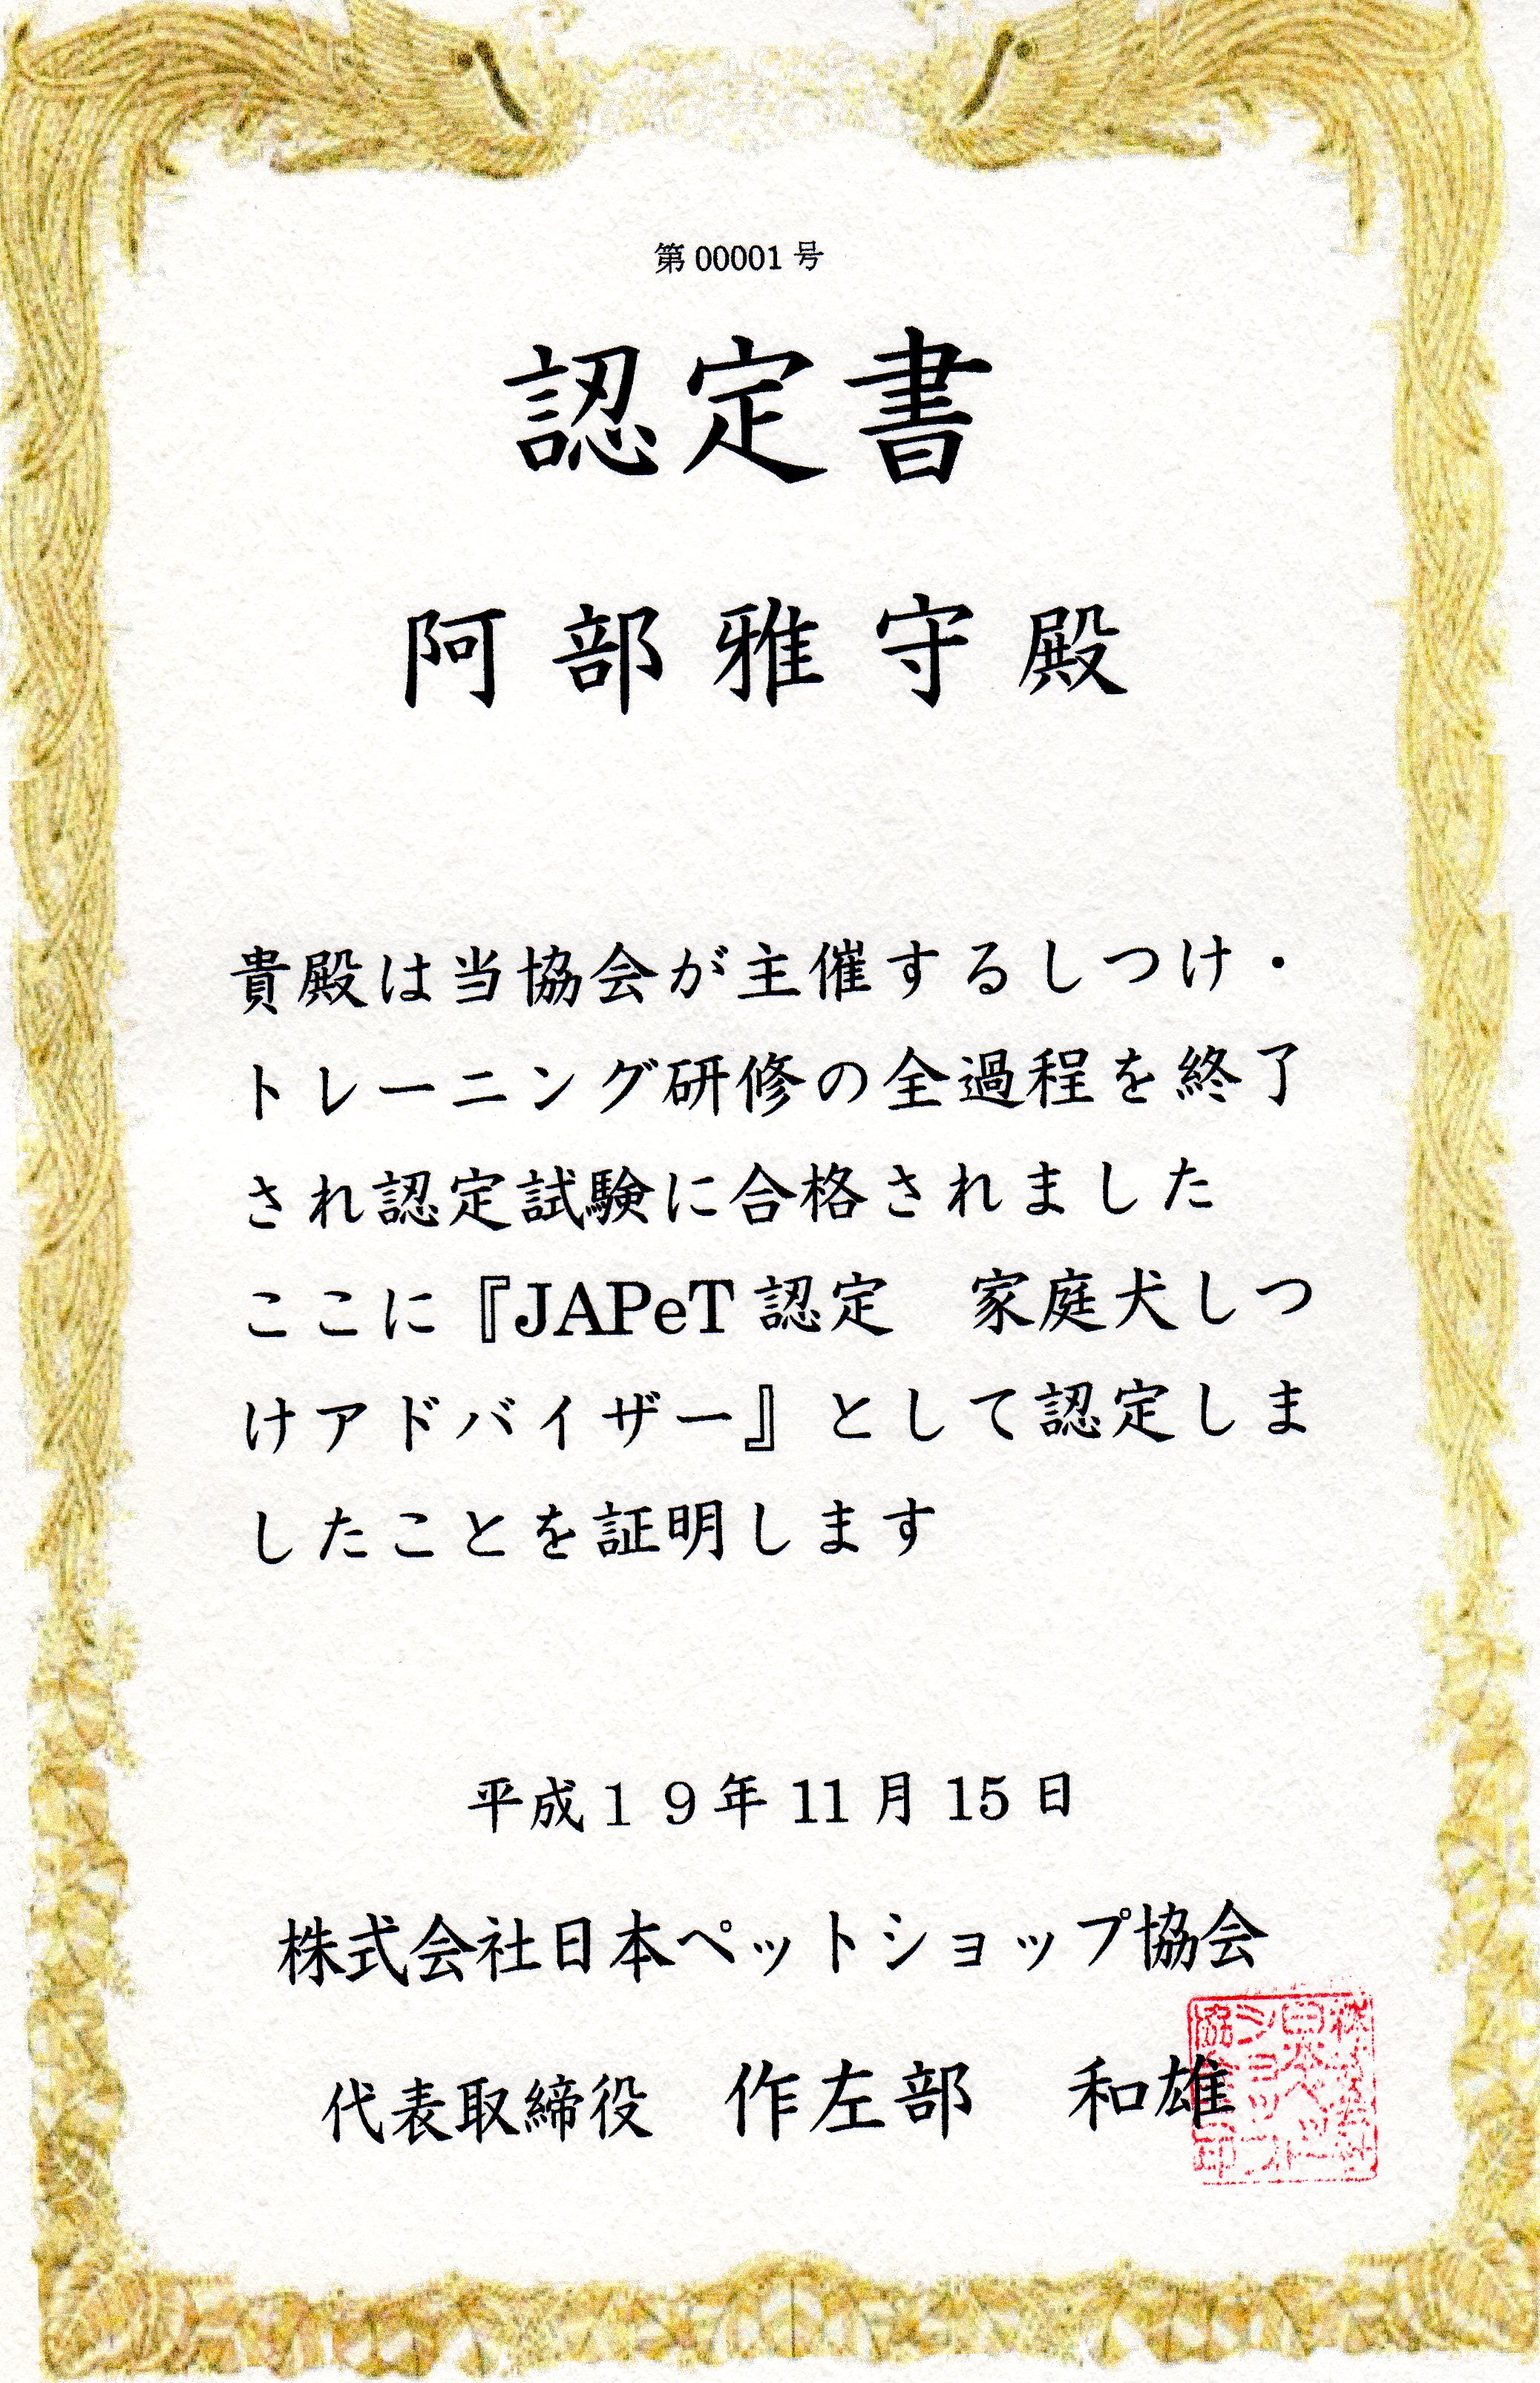 第00001号
認定書
阿部雅守殿
貴殿は当協会が主催するしつけ・
トレーニング研修の全過程を終了
され認定試験に合格されました
ここに『JAPeT認定　家庭犬しつ
けアドバイザー』として認定しま
したことを証明します
平成１９年11月15日
株式会社日本ペットショップ協会
代表取締役　作左部　和雄